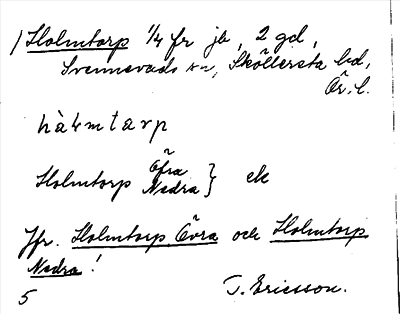 1) Holmtorp 1/4 fr jb, 2 gd,
Svennevads sn, Sköllersta hd,
Ör. l.
hàlmtàrp
Holmtorp Öfra Nedra } ek
Jfr. Holmtorp Övra och Holmtorp
Nedra!
5 T. Ericsson.